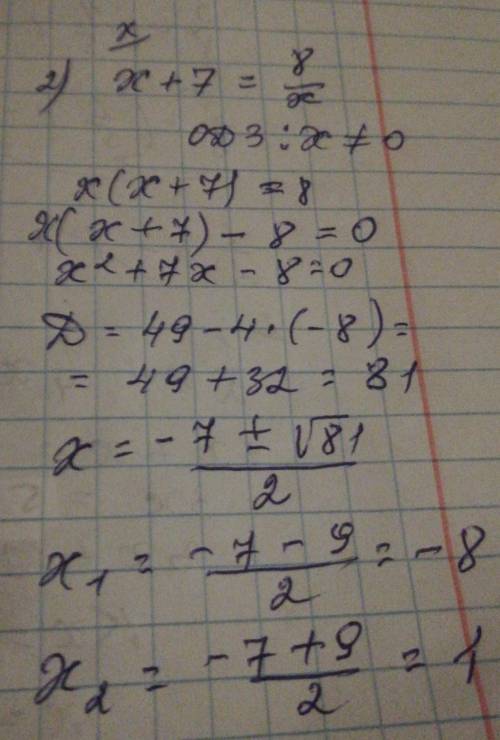 x
2) x + 7 = 8/x
ОДЗ : x ≠ 0
x(x + 7) = 8
x(x + 7) - 8 = 0
x² + 7x - 8 = 0
Д = 49 - 4 · (-8) =
= 49 + 32 = 81
x = (-7 ± √81)/2
x₁ = (-7 - 9)/2 = -8
x₂ = (-7 + 9)/2 = 1